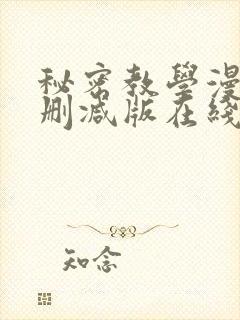 秘密教學漫
刪減版在綫
知念